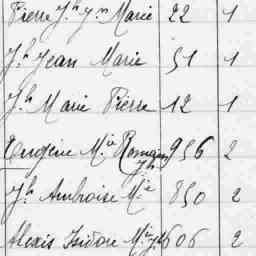 Pierre Jh Jn Marie 22 1
Jh Jean Marie 51 1
Jh Marie Pierre 12 1
Eugène Mie Romain Jh 956 2
Jh Ambroise Mie 850 2
Alexis Isidore Mie Jh 606 2